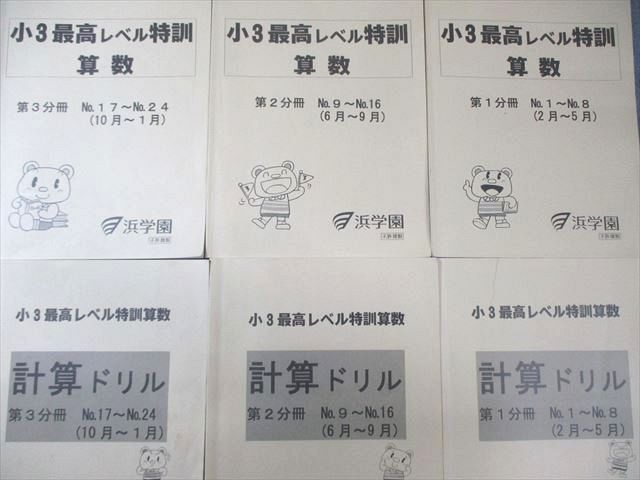 小3最高レベル特訓
算数
第3分冊 No.17〜No.24
(10月〜1月)
浜学園
不許複製
小3最高レベル特訓
算数
第2分冊 No.9〜No.16
(6月〜9月)
浜学園
不許複製
小3最高レベル特訓
算数
第1分冊 No.1〜No.8
(2月〜5月)
浜学園
不許複製
小3最高レベル特訓算数
計算ドリル
第3分冊 No.17〜No.24
(10月〜1月)
小3最高レベル特訓算数
計算ドリル
第2分冊 No.9〜No.16
(6月〜9月)
小3最高レベル特訓算数
計算ドリル
第1分冊 No.1〜No.8
(2月〜5月)